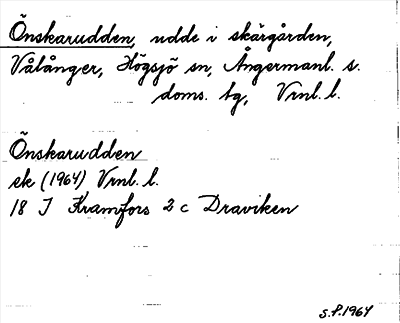 Önskarudden, udde i skärgården,
Vålånger, Högsjö sn, Ångermanl. s.
doms. tg, Vrnl. l.
Önskarudden
ek (1964) Vrnl. l.
18 I Kramfors 2 c Draviken
S.P. 1964